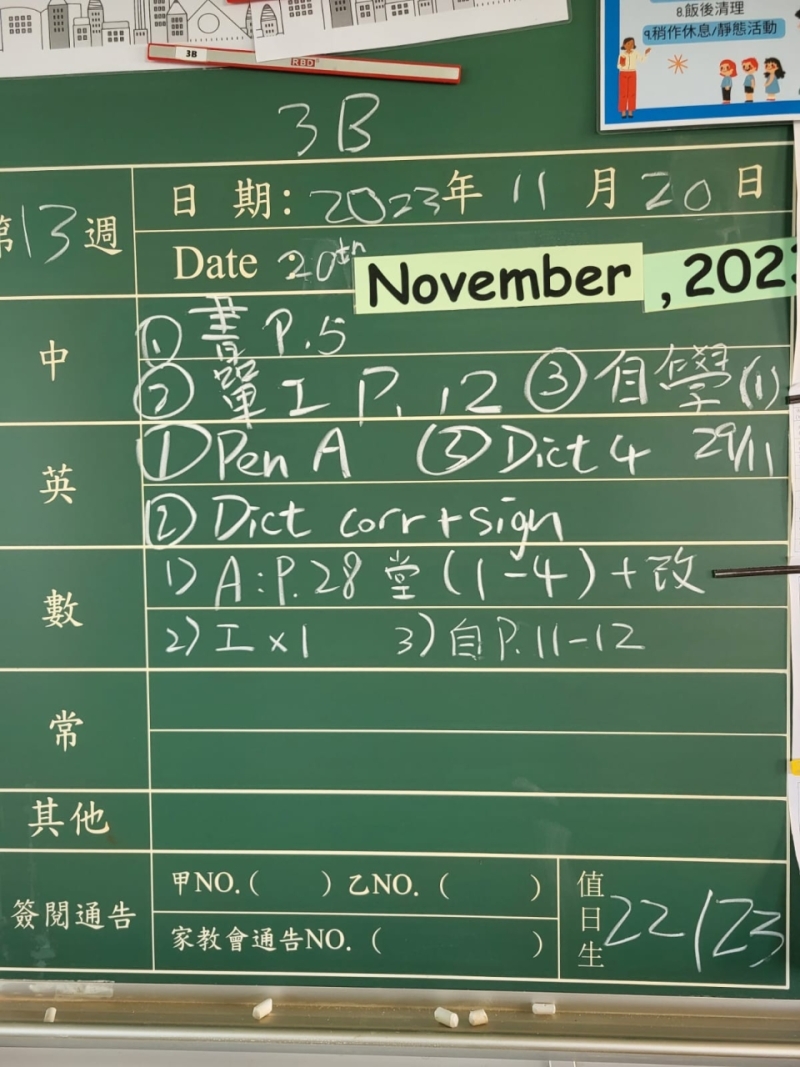 8.飯後清理
9.稍作休息/靜態活動
3B
RBD
3B
第13週
日 期: 2023年 11 月 20 日
Date 20th November , 2023
中
① 書 P.5
② 單工 P. 12 ③ 自學 (1)
英
① Pen A ③ Dict 4 29/11
② Dict corr + sign
數
1) A:P.28 堂 (1-4) + 改
2) 工 x 1 3) 自 P.11-12
常
其他
簽閱通告
甲NO.( ) 乙NO. ( )
家教會通告NO. ( )
值日生 22/23